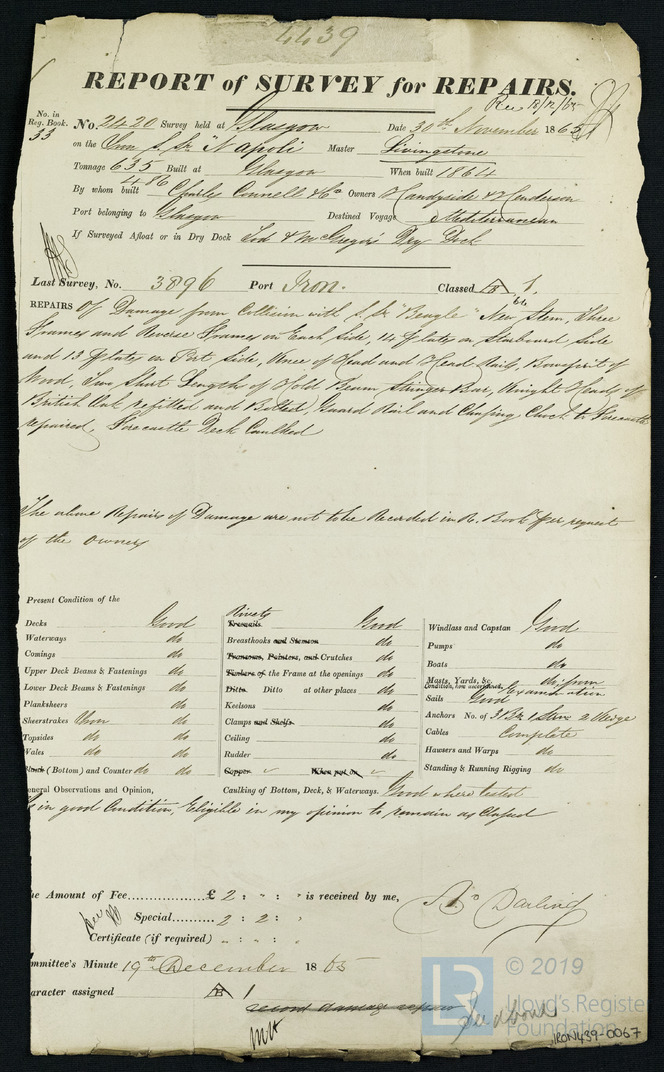 4439
REPORT of SURVEY for REPAIRS.
Rec 18/12/65
No. in Reg. Book. 33
No. 2420 Survey held at Glasgow Date 30th November 1865
on the Iron S. Sr "Napoli" Master Livingstone
Tonnage 635 Built at Glasgow When built 1864
486
By whom built Charles Connell & Co Owners Handyside & Henderson
Port belonging to Glasgow Destined Voyage Mediterranean
If Surveyed Afloat or in Dry Dock Tod & McGregor's Dry Dock
Last Survey, No. 3896 Port Iron. Classed A 1
B
64
REPAIRS Of Damage from Collision with S. Sr "Beagle" New Stem, Three
Frames and Reverse Frames on Each Side, 14 plates on Starboard Side
and 13 plates on Port Side, Knee of Head and Head Rails, Bowsprit of
Wood, Two Short Lengths of Hold Beam Stringer Bar, Knight Heads of
British Oak refitted and Bolted, Guard Rail and Chafing Chock to Forecastle
repaired, Forecastle Deck Caulked
The above Repairs of Damage are not to be Recorded in R. Book per request
of the owners
Present Condition of the
Decks Good
Waterways do
Comings do
Upper Deck Beams & Fastenings do
Lower Deck Beams & Fastenings do
Planksheers do
Sheerstrakes Iron do
Topsides do do
Wales do do
(Bottom) and Counter do do
Rivets
Treenails Good
Breasthooks and Stemson do
Transoms, Pointers, and Crutches do
Timbers of the Frame at the openings do
Ditto Ditto at other places do
Keelsons do
Clamps and Shelfs do
Ceiling do
Rudder do
Copper When put on
Windlass and Capstan Good
Pumps do
Boats do
Masts, Yards, &c. do from
Condition, how ascertained, Examination
Sails Good
Anchors No. of 3 Br 1 Strm 2 Kedge
Cables Complete
Hausers and Warps do
Standing & Running Rigging do
General Observations and Opinion, Caulking of Bottom, Deck, & Waterways. Good where tested
in good Condition, Eligible in my opinion to remain as Classed
The Amount of Fee £ 2 : " : " is received by me,
Special 2 : 2 : "
Certificate (if required) " : " : "
As Darling
Committee's Minute 19th December 1865
Character assigned A 1
B
record damage repairs
See above
© 2019
LR
Lloyd's Register
Foundation
IRON439-0067